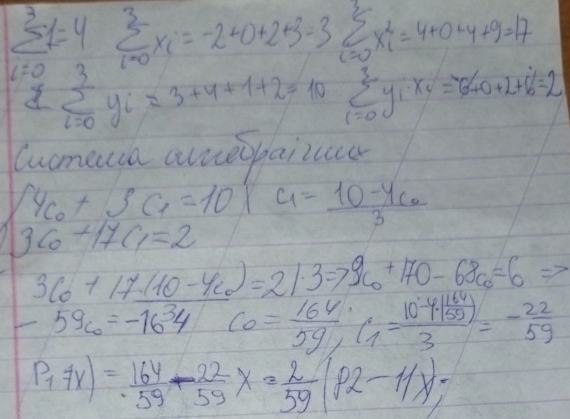 ∑_{i=0}^{3} 1 = 4   ∑_{i=0}^{3} x_i = -2+0+2+3=3   ∑_{i=0}^{3} x_i^2 = 4+0+4+9=17
∑_{i=0}^{3} y_i = 3+4+1+2=10   ∑_{i=0}^{3} y_i x_i = -6+0+2+6=2
Система алгебраїчних
{ 4c_0 + 3c_1 = 10 | c_1 = (10-4c_0)/3
3c_0 + 17c_1 = 2
3c_0 + 17·(10-4c_0)/3 = 2 |·3 => 9c_0 + 170 - 68c_0 = 6 =>
-59c_0 = -164   c_0 = 164/59, c_1 = (10-4·(164/59))/3 = -22/59
P_1(x) = 164/59 - 22/59 x = 2/59 (82-11x);